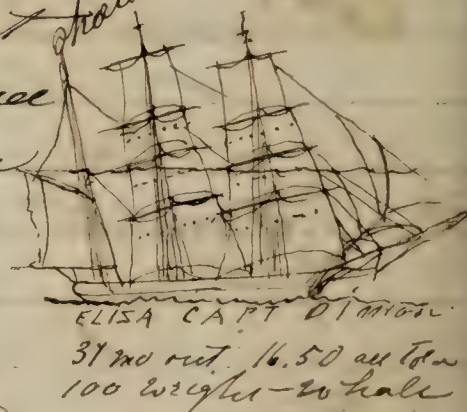 ELISA CAPT DIMON
37 mo out. 16.50 all Told
100 wright-whale